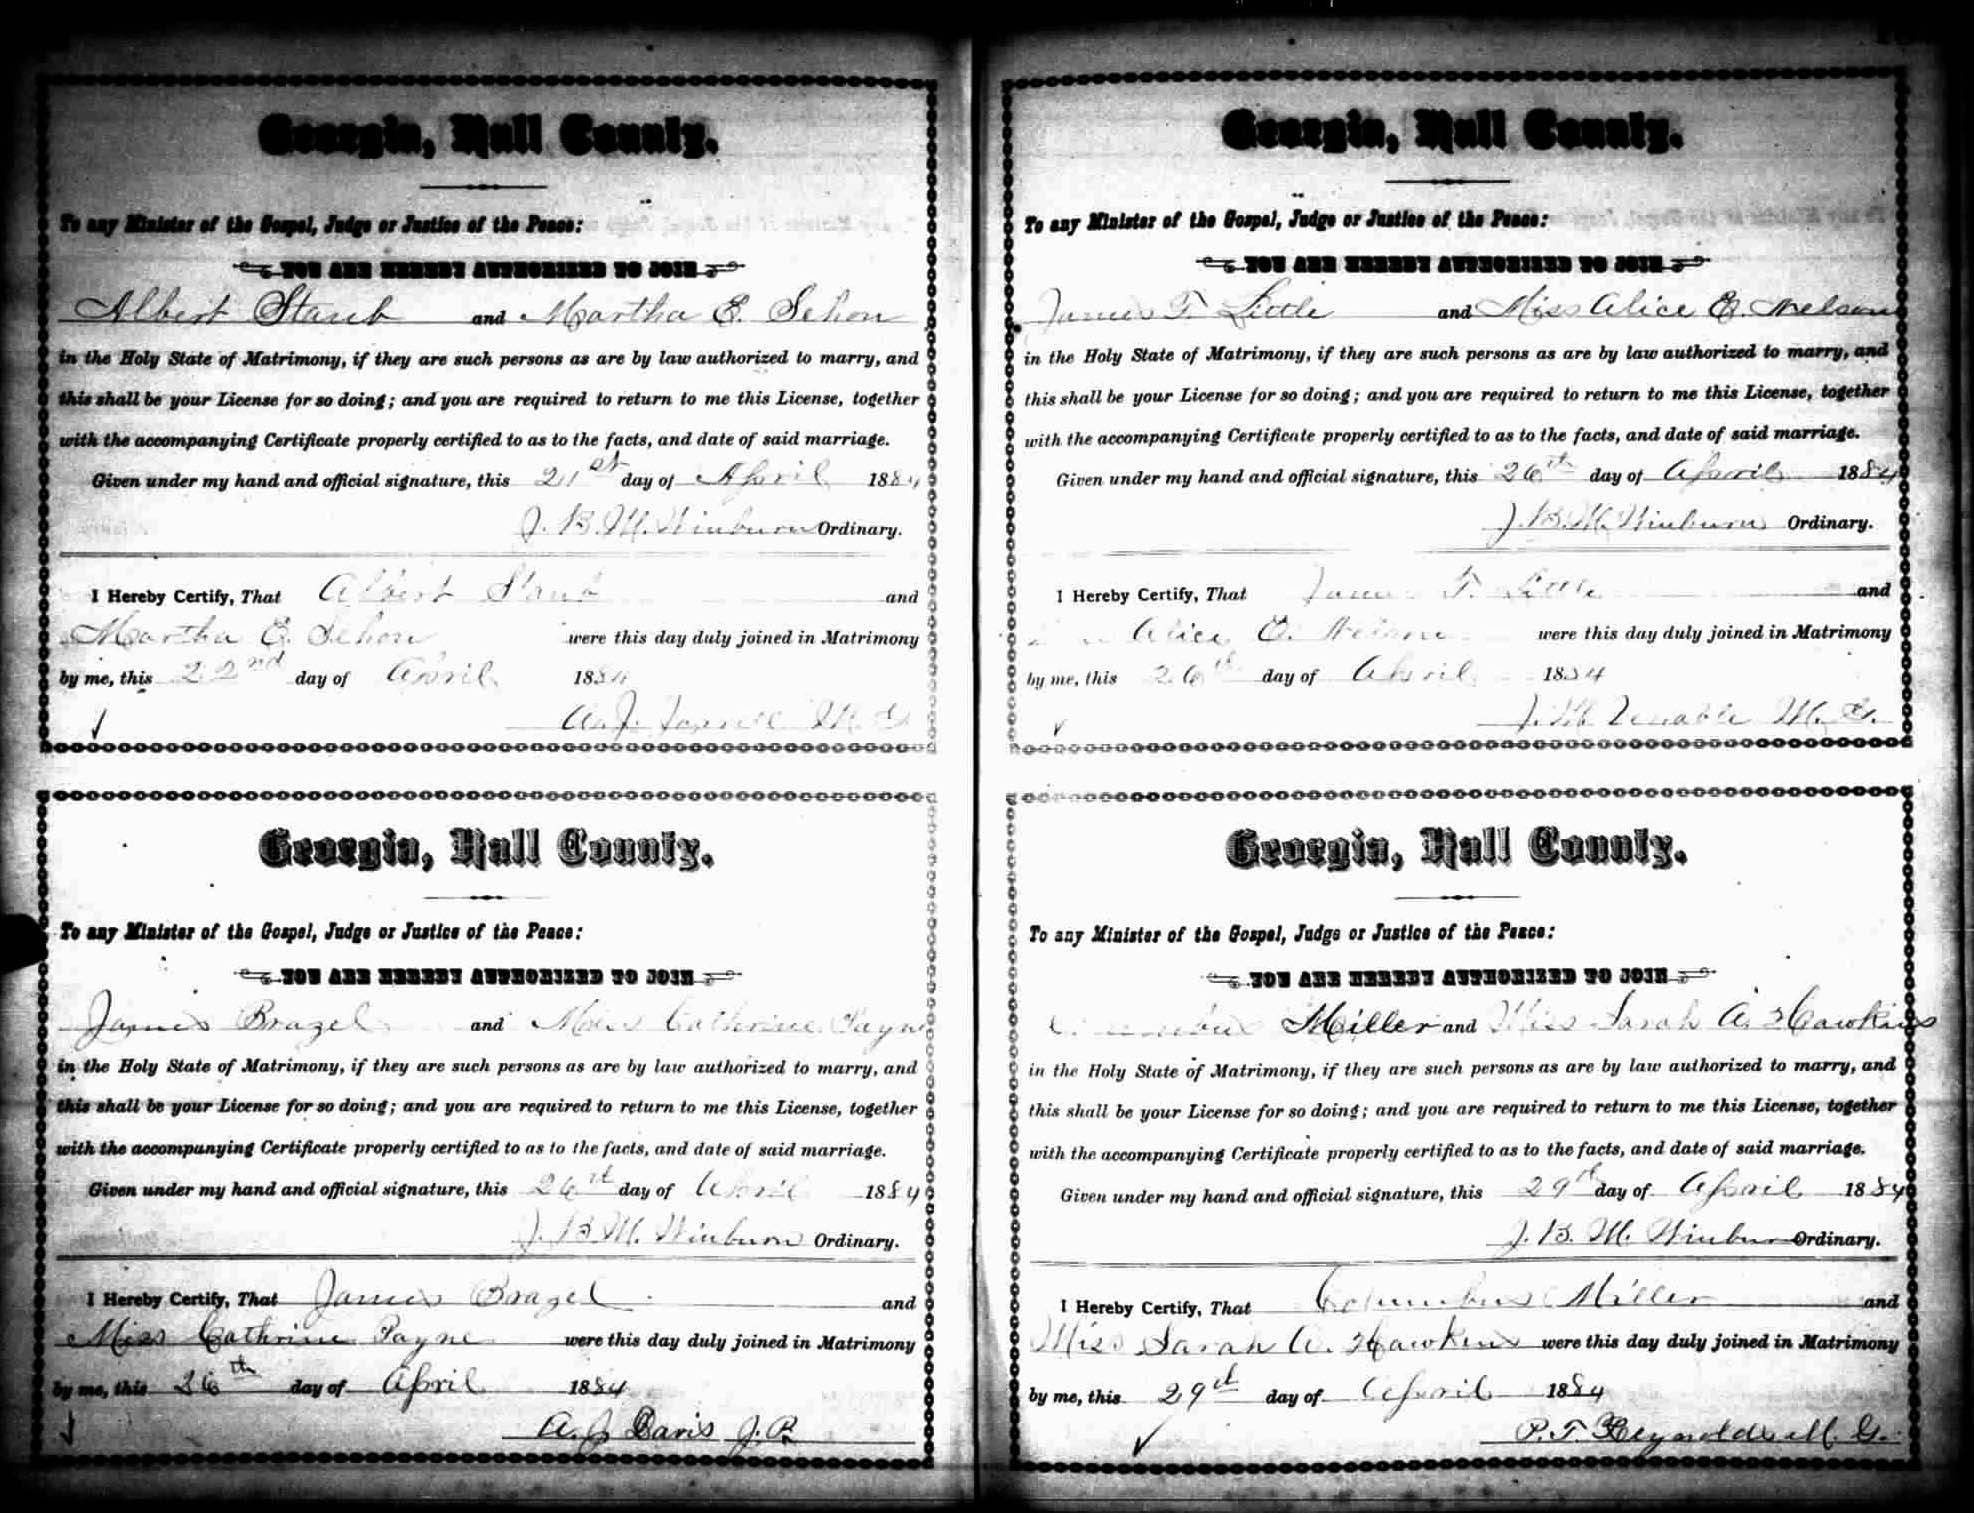 Georgia, Hall County.
To any Minister of the Gospel, Judge or Justice of the Peace:
YOU ARE HEREBY AUTHORIZED TO JOIN
Albert Staub and Martha E. Sehon
in the Holy State of Matrimony, if they are such persons as are by law authorized to marry, and
this shall be your License for so doing; and you are required to return to me this License, together
with the accompanying Certificate properly certified to as to the facts, and date of said marriage.
Given under my hand and official signature, this 21st day of April 1884
J. B. M. Winburn Ordinary.
I Hereby Certify, That Albert Staub and
Martha E. Sehon were this day duly joined in Matrimony
by me, this 22nd day of April 1884
A. J. M. G.
Georgia, Hall County.
To any Minister of the Gospel, Judge or Justice of the Peace:
YOU ARE HEREBY AUTHORIZED TO JOIN
James Brazel and Miss Cathrine Payne
in the Holy State of Matrimony, if they are such persons as are by law authorized to marry, and
this shall be your License for so doing; and you are required to return to me this License, together
with the accompanying Certificate properly certified to as to the facts, and date of said marriage.
Given under my hand and official signature, this 26th day of April 1884
J. B. M. Winburn Ordinary.
I Hereby Certify, That James Brazel and
Miss Cathrine Payne were this day duly joined in Matrimony
by me, this 26th day of April 1884
A. J. Davis J. P.
Georgia, Hall County.
To any Minister of the Gospel, Judge or Justice of the Peace:
YOU ARE HEREBY AUTHORIZED TO JOIN
James T. Little and Miss Alice E. Nelson
in the Holy State of Matrimony, if they are such persons as are by law authorized to marry, and
this shall be your License for so doing; and you are required to return to me this License, together
with the accompanying Certificate properly certified to as to the facts, and date of said marriage.
Given under my hand and official signature, this 26th day of April 1884
J. B. M. Winburn Ordinary.
I Hereby Certify, That James T. Little and
Alice E. Nelson were this day duly joined in Matrimony
by me, this 26th day of April 1884
J. M. Venable M. G.
Georgia, Hall County.
To any Minister of the Gospel, Judge or Justice of the Peace:
YOU ARE HEREBY AUTHORIZED TO JOIN
Columbus Miller and Miss Sarah A. Hawkins
in the Holy State of Matrimony, if they are such persons as are by law authorized to marry, and
this shall be your License for so doing; and you are required to return to me this License, together
with the accompanying Certificate properly certified to as to the facts, and date of said marriage.
Given under my hand and official signature, this 29th day of April 1884
J. B. M. Winburn Ordinary.
I Hereby Certify, That Columbus Miller and
Miss Sarah A. Hawkins were this day duly joined in Matrimony
by me, this 29th day of April 1884
P. T. Reynolds M. G.